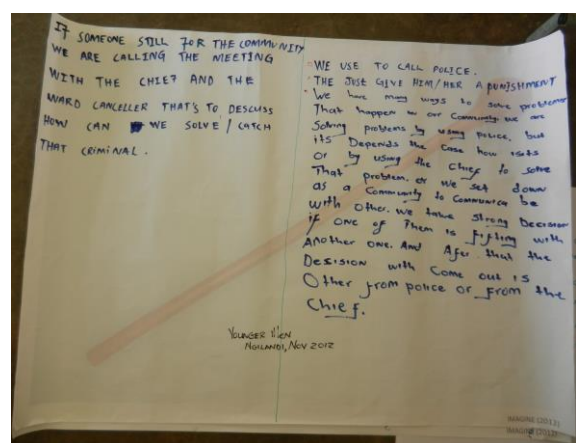 If SOMEONE STILL FOR THE COMMUNITY
WE ARE CALLING THE MEETING
WITH THE CHIEF AND THE
WARD CANCELLER THAT'S TO DESCUSS
HOW CAN WE SOLVE / CATCH
THAT CRIMINAL.
WE USE TO CALL POLICE.
THE JUST GIVE HIM/HER A PUNISHMENT
We have many ways to solve problems
That happen in our Community. we are
Solving problems by using police. but
its Depends the case how
Or by using the Chief to solve
That problem. or we set down
as a Community to Communica be
with Other. we take Strong Decision
if one of Them is fitting with
Another one. And Afer that the
Desision with Come out is
Other from police or from the
Chief.
YOUNGER MEN
NOILANDI, NOV 2012
IMAGINE (2012)
IMAGINE (2012)